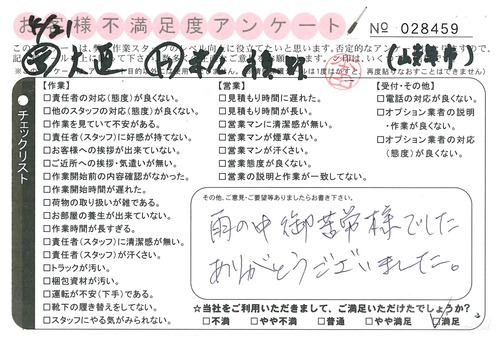 お客様不満足度アンケート
No 028459
【作業】
□責任者の対応(態度)が良くない。
□他のスタッフの対応(態度)が良くない。
□作業を見ていて不安がある。
□責任者(スタッフ)に好感が持てない。
□お客様への挨拶が出来ていない。
□ご近所への挨拶・気遣いが無い。
□作業開始前の内容確認がなかった。
□作業開始時間が遅れた。
□荷物の取り扱いが雑である。
□お部屋の養生が出来ていない。
□作業時間が長すぎる。
□責任者(スタッフ)に清潔感が無い。
□責任者(スタッフ)が汗くさい。
□トラックが汚い。
□梱包資材が汚い。
□運転が不安(下手)である。
□靴下の履き替えをしてない。
□スタッフにやる気がみられない。
【営業】
□見積もり時間に遅れた。
□見積もり時間が長い。
□営業マンに清潔感が無い。
□営業マンが煙草くさい。
□営業マンが汗くさい。
□営業態度が良くない。
□営業の説明と作業が一致してない。
【受付・その他】
□電話の対応が良くない。
□オプション業者の説明
・作業が良くない。
□オプション業者の対応
(態度)が良くない。
チェックリスト
その他、ご意見・ご要望等ありましたらお書き下さい。
雨の中御苦労様でした
ありがとうございました。
☆当社をご利用いただきまして、ご満足いただけたでしょうか?
□不満 □やや不満 □普通 □やや満足 □満足